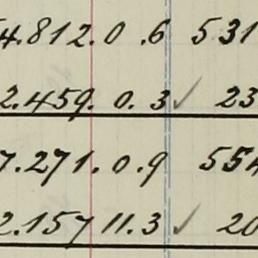 4.812.0.6 531
2.459.0.3✓ 23
7.271.0.9 554
2.157 11.3✓ 20